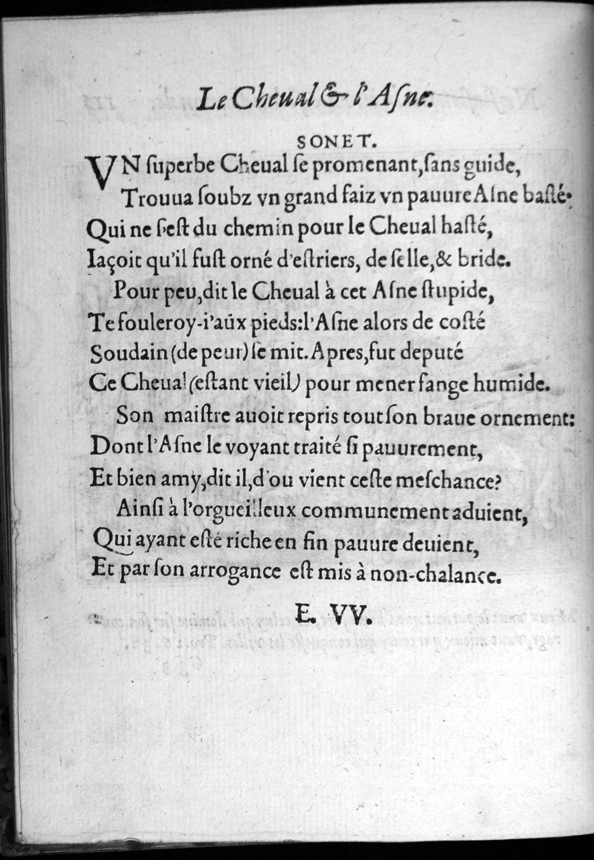 Le Cheual & l'Aſne.
SONET.
VN ſuperbe Cheual ſe promenant, ſans guide,
Trouua ſoubz vn grand faiz vn pauure Aſne baſté.
Qui ne ſ'eſt du chemin pour le Cheual haſté,
Iaçoit qu'il fuſt orné d'eſtriers, de ſelle, & bride.
Pour peu, dit le Cheual à cet Aſne ſtupide,
Te fouleroy-i'aúx pieds: l'Aſne alors de coſté
Soudain (de peur) ſe mit. Apres, fut deputé
Ce Cheual (eſtant vieil) pour mener fange humide.
Son maiſtre auoit repris tout ſon braue ornement:
Dont l'Aſne le voyant traité ſi pauurement,
Et bien amy, dit il, d'ou vient ceſte meſchance?
Ainſi à l'orgueilleux communement aduient,
Qui ayant eſté riche en fin pauure deuient,
Et par ſon arrogance eſt mis à non-chalance.
E. VV.